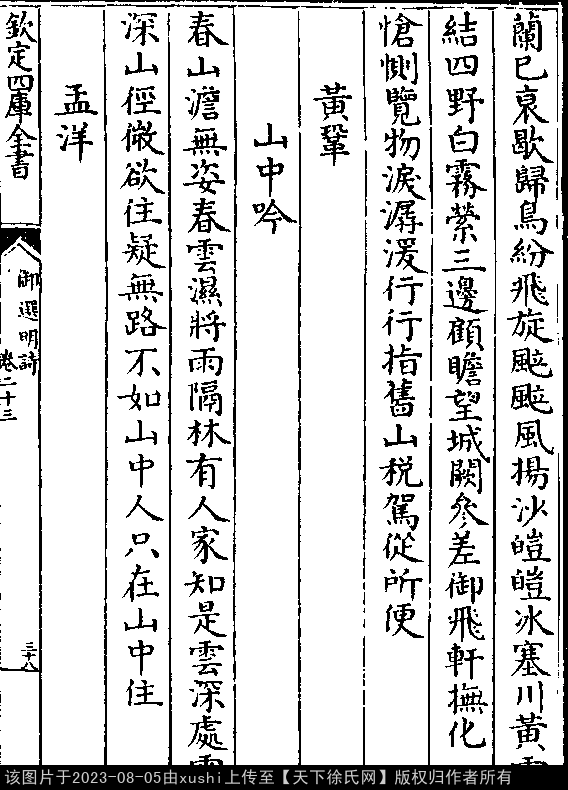 蘭已衰歇歸鳥紛飛旋颭颭風揚沙皚皚冰塞川黃
結四野白霧縈三邊顧瞻望城闕參差御飛軒撫化
愴惻覽物淚潺湲行行指舊山税駕從所便
黃鞏
山中吟
春山澹無姿春雲濕將雨隔林有人家知是雲深處
深山徑微欲住疑無路不如山中人只在山中住
孟洋
欽定四庫全書
御選明詩
卷二十三
三十八
该图片于2023-08-05由xushi上传至【天下徐氏网】版权归作者所有